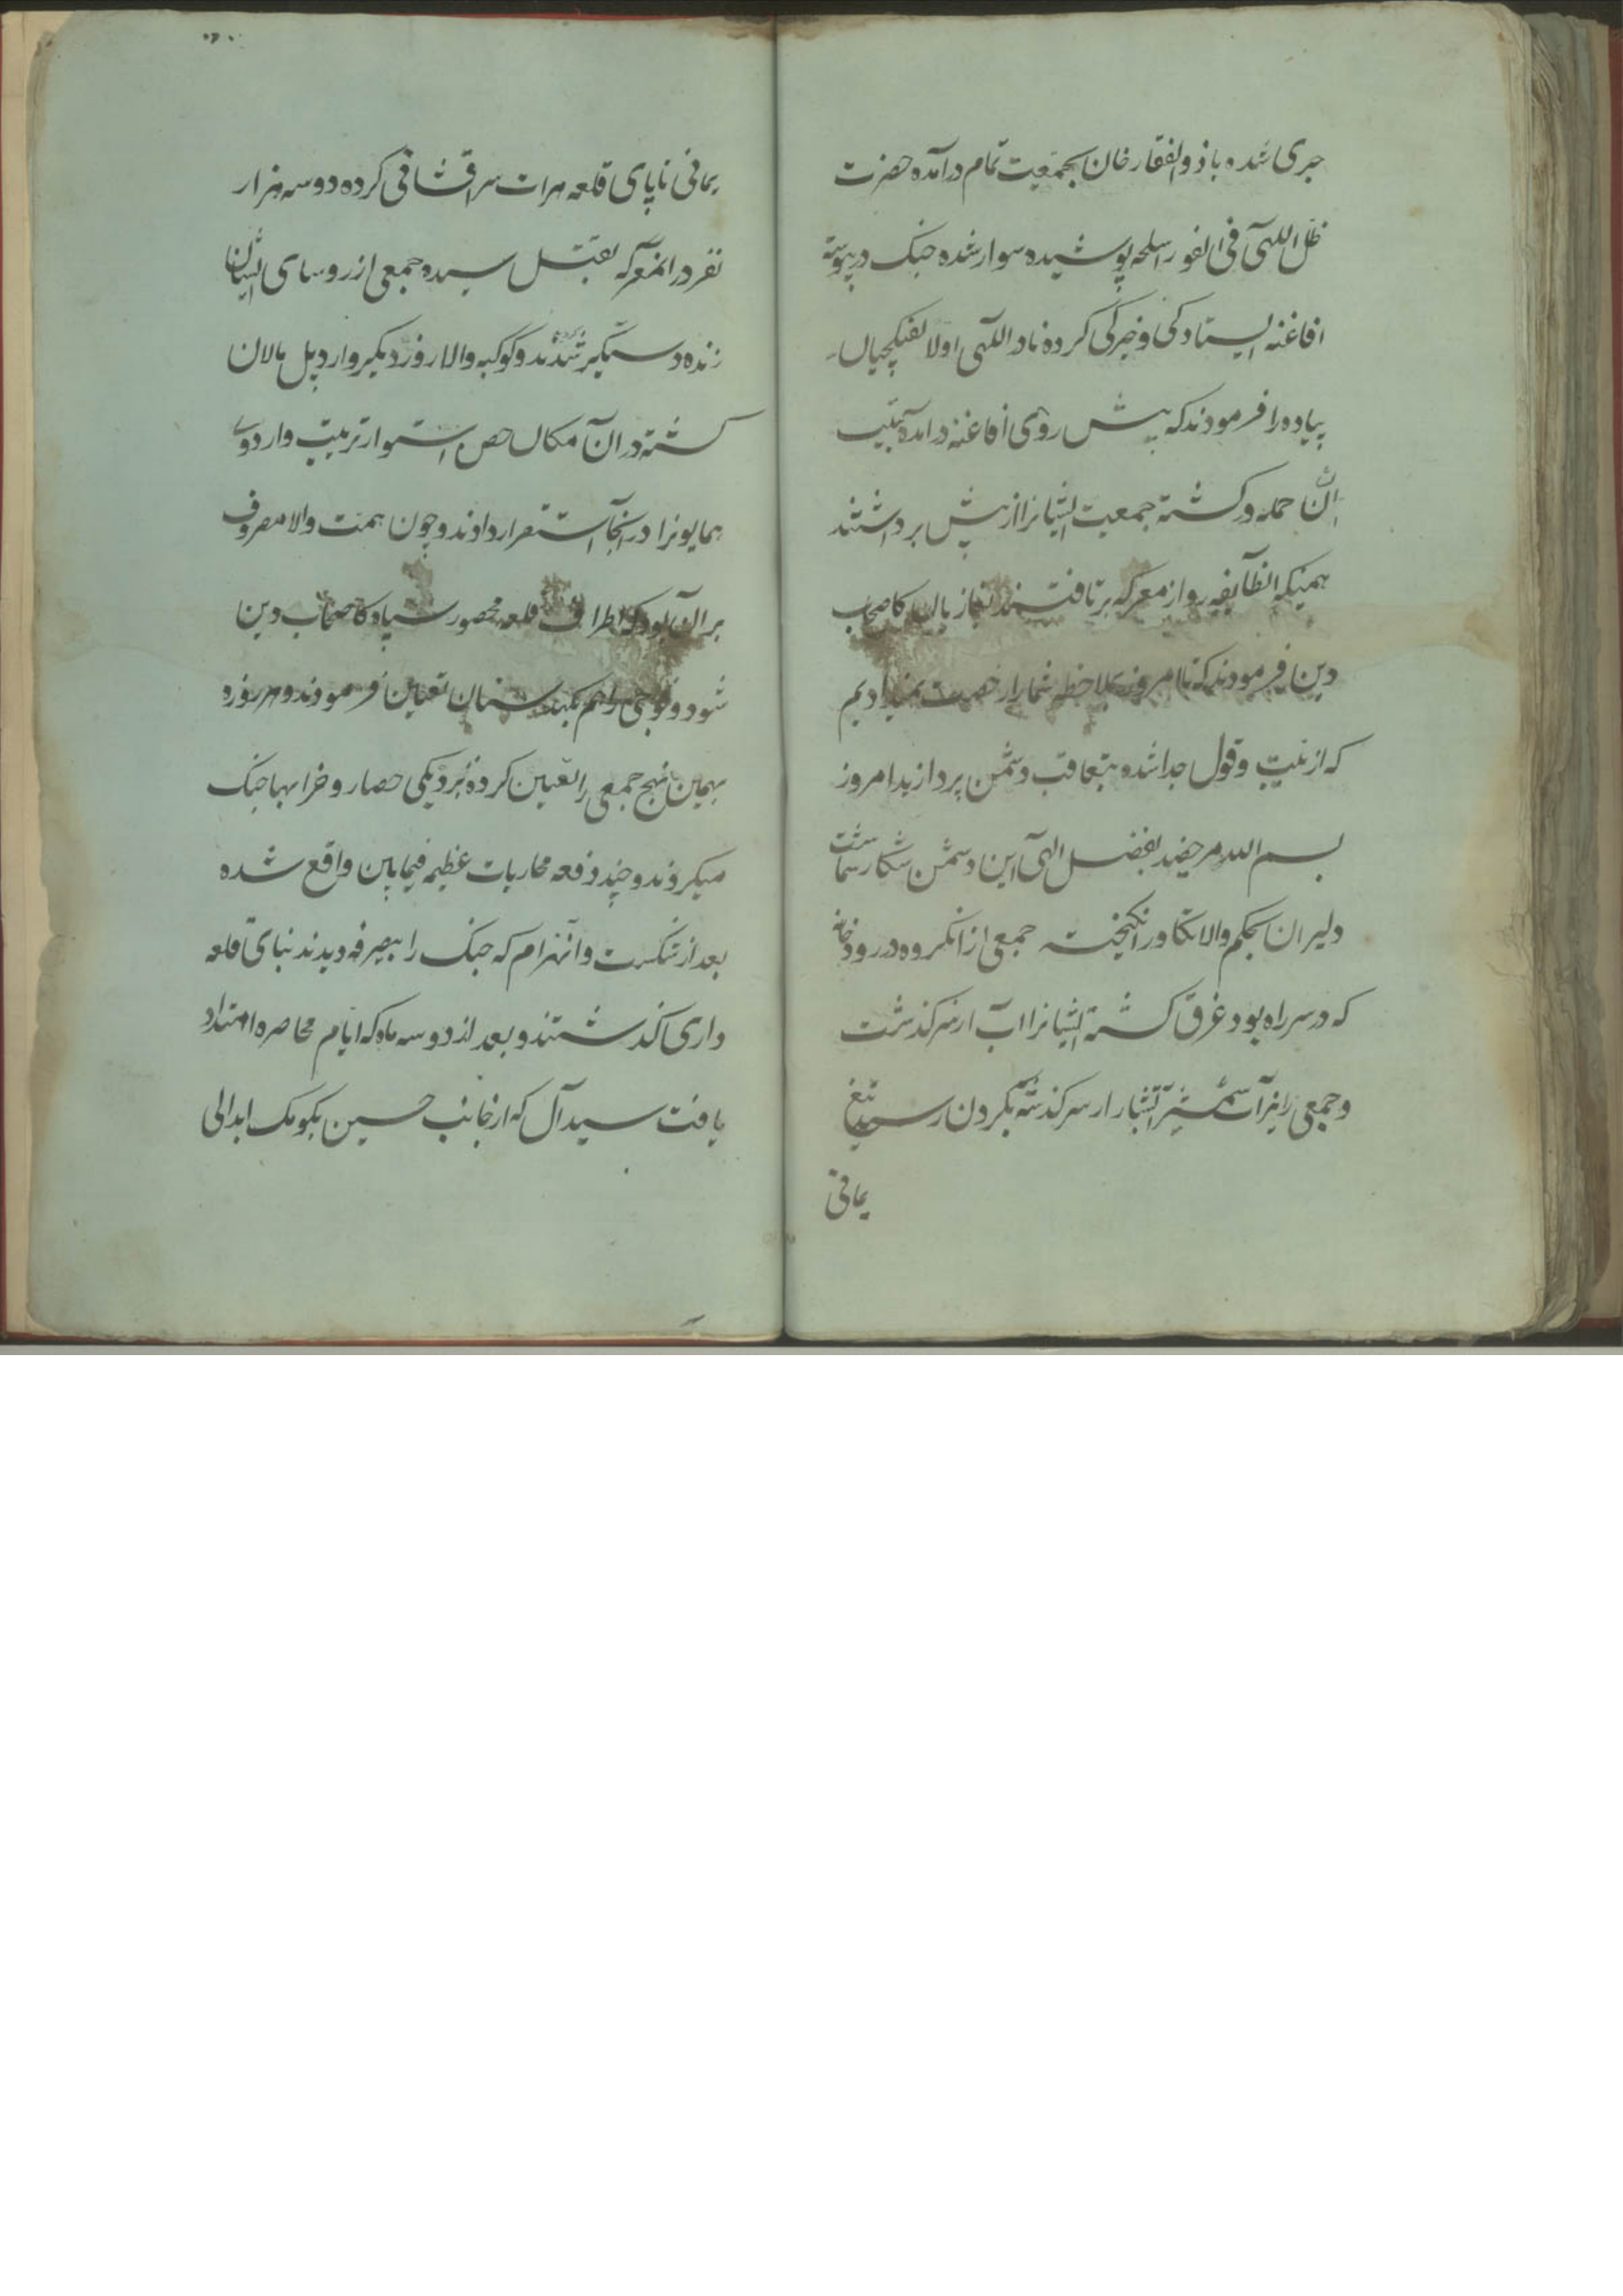 جری شده با ذوالفقار خان بجمعیت تمام درآمده حضرت
ظل اللهی فی الفور اسلحه پوشیده سوار شده جنک در پیوسته
افاغنه ایستادکی و خیرکی کرده نادر اللهی اولا تفنکچیان
پیاده را فرمودند که پیش روی افاغنه درآمده
حمله ور کشته جمعیت ایشانرا از پیش برداشتند
همینکه انطایفه رو از معرکه برتافتند
دین فرمودند که تا امروز بملاحظه شما را رخصت نمیدادیم
که از تیپ و قول جدا شده بتعاقب دشمن پردازید امروز
بسم الله مرخصید بفضل الهی این دشمن شکار شماست
دلیران بحکم والا تکاور انکیخته جمعی از انکروه در رودخانه
که در سر راه بود غرق کشته ایشانرا آب از سر کذشت
و جمعی را نیز آب شمشیر آتشبار از سر کذشته بکردن رسید تیغ
یمانی
یمانی تا پای قلعه هرات سرافشانی کرده دو سه هزار
نفر در انمعرکه بقتل رسیده جمعی از روسای ایشان
زنده دستکیر شدند و کوکبه والا روز دیکر وارد پل مالان
کشته در آن مکان حصن استوار ترتیب و اردوی
همایونرا در آنجا استقرار دادند و چون همت والا مصروف
بر آن بود که اطراف قلعه محصور سپاه دین
شود و فوجی را هم تعیین فرمودند و هر روزه
بهمین نهج جمعی را تعیین کرده بنزدیکی حصار و خرابها جنک
میکردند و چند دفعه محاربات عظیمه فیمابین واقع شده
بعد از شکست و انهزام که جنک را بیصرفه دیدند بنای قلعه
داری کذاشتند و بعد از دو سه ماه که ایام محاصره امتداد
یافت سیدال که از جانب حسین بکومک ابدالی